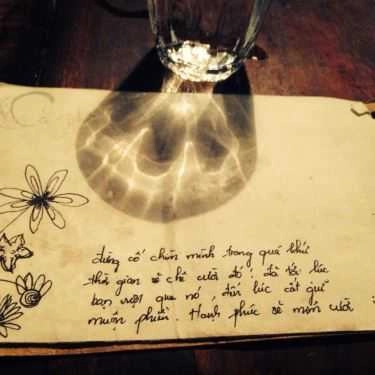 đừng cố chôn mình trong quá khứ
thời gian sẽ chê cười đó! đã tới lúc
bạn vượt qua nó, đến lúc cất giữ
muộn phiền. Hạnh phúc sẽ mỉm cười